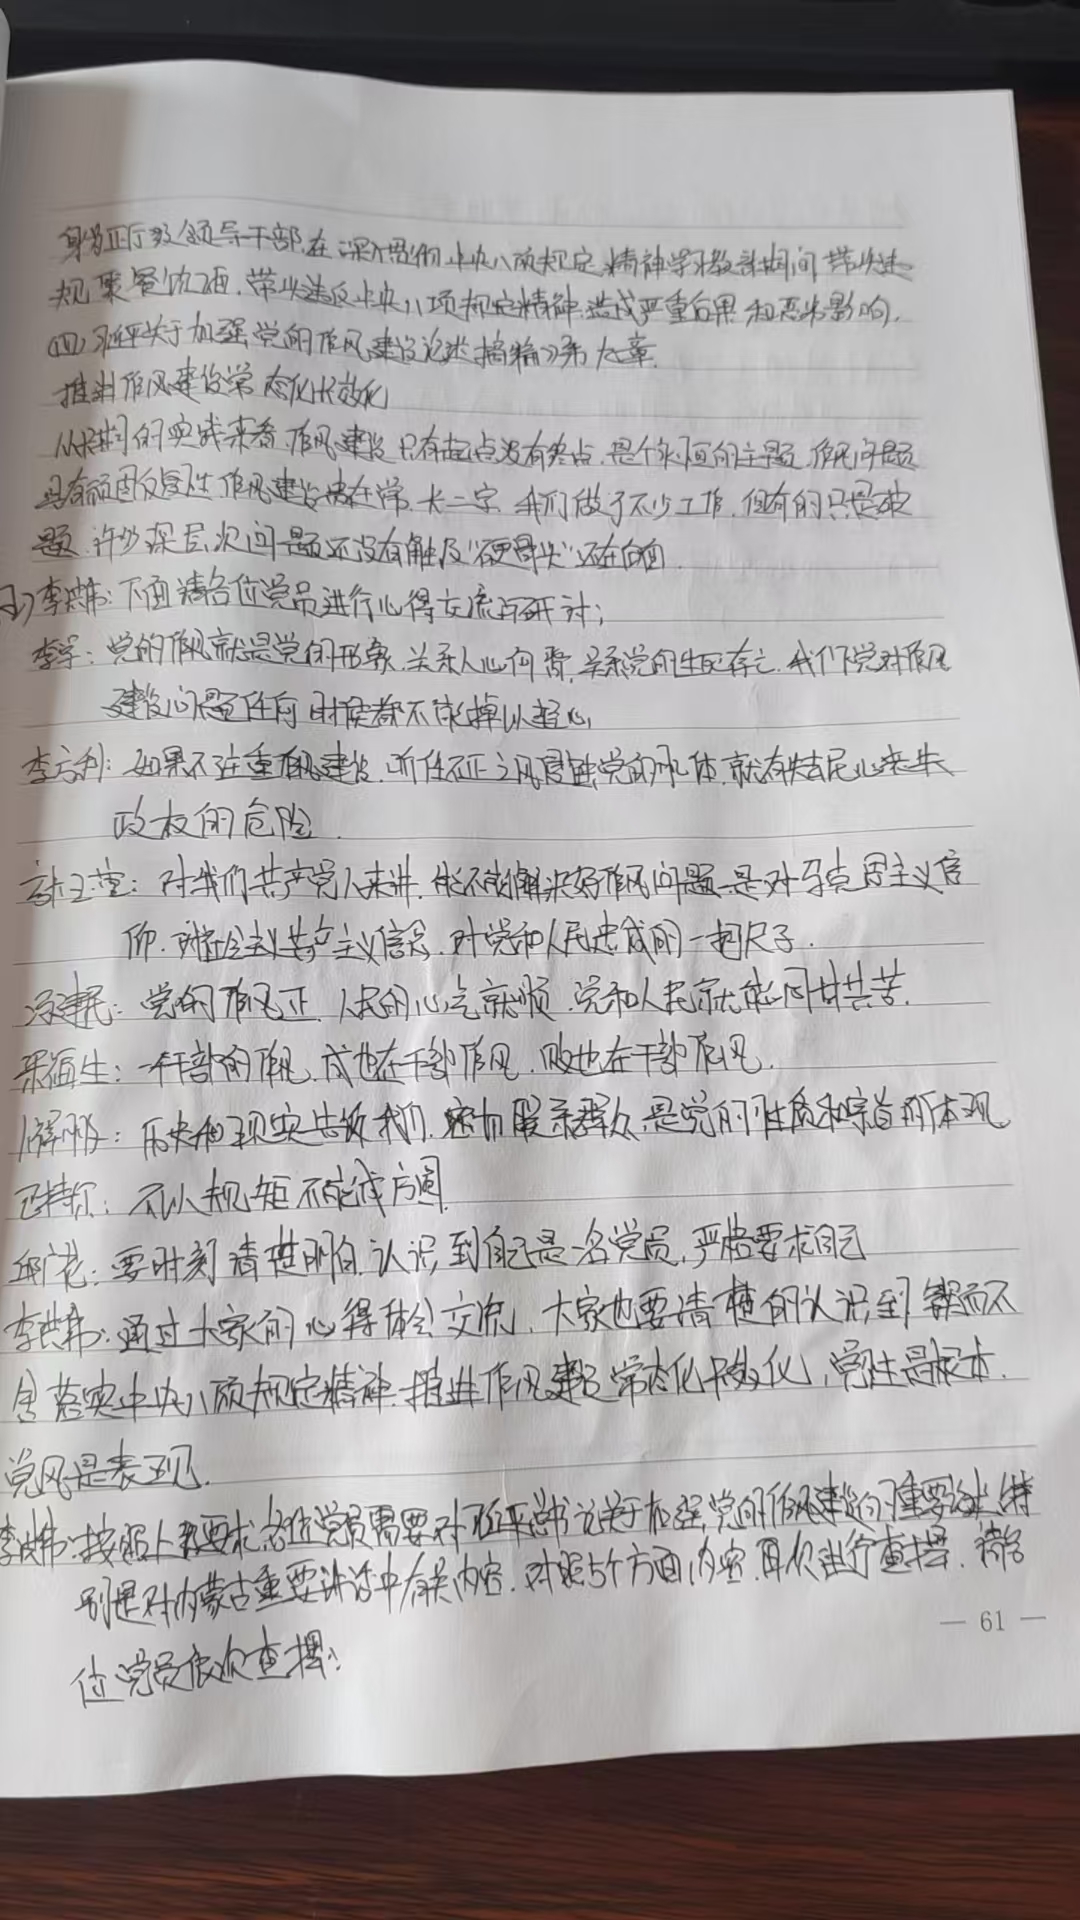 身为正厅级领导干部,在深入贯彻中央八项规定精神学习教育期间带头违
规聚餐饮酒,带头违反中央八项规定精神,造成严重后果和恶劣影响.
(四)习近平关于加强党的作风建设论述摘编》第九章.
推进作风建设常态化长效化
从长期的实践来看,作风建设只有起点没有终点,是个永恒的主题,作风问题
具有顽固反复性,作风建设贵在常、长二字.我们做了不少工作,但有的只是破
题,许多深层次问题还没有触及“硬骨头”还在后面.
李洪伟:下面请各位党员进行心得交流与研讨;
李学:党的作风就是党的形象,关系人心向背,关系党的生死存亡.我们党对作风
建设问题任何时候都不能掉以轻心,
李立利:如果不注重作风建设,听任不正之风侵蚀党的肌体,就有失去民心丧失
政权的危险.
对我们共产党人来讲,能不能解决好作风问题,是对马克思主义信
仰、对社会主义共产主义信念、对党和人民忠诚的一把尺子.
冯建民:党的作风正,人民的心气就顺,党和人民就能同甘共苦.
梁福生:一个干部的作风,成也在干部作风,败也在干部作风.
历史和现实告诉我们,密切联系群众,是党的性质和宗旨的体现
巴特尔:不以规矩不能成方圆.
邱广花:要时刻清楚明白,认识到自己是一名党员,严格要求自己
李洪伟:通过大家的心得体会交流,大家也要清楚的认识到锲而不
舍落实中央八项规定精神,推进作风建设常态化长效化,党性是根本,
党风是表现.
李洪伟:按照上级要求,各位党员需要对习近平总书记关于加强党的作风建设的重要论述,特
别是对内蒙古重要讲话中有关内容,对照5个方面内容,再次进行查摆,请各
位党员依次查摆:
— 61 —